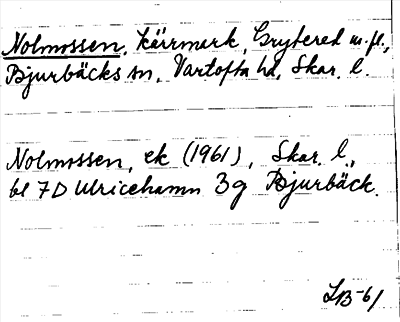 Nolmossen, kärrmark, Grytered m.fl.,
Bjurbäcks sn, Vartofta hd, Skar. l.
Nolmossen, ek (1961), Skar. l.,
bl 7D Ulricehamn 3g Bjurbäck.
LB-61